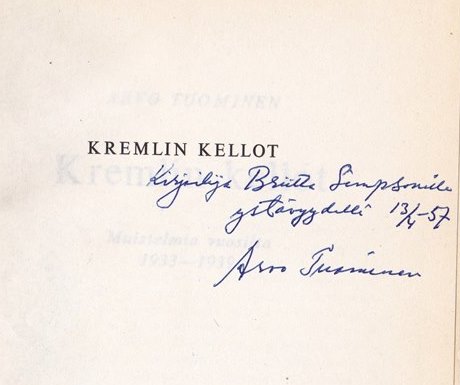 ARVO TUOMINEN
KREMLIN KELLOT
Kremlin kellot
Kirjailija Briitta Simpsonille
ystävyydellä 13/4-57
Muistelmia vuosilta
1933-1939
Arvo Tuominen